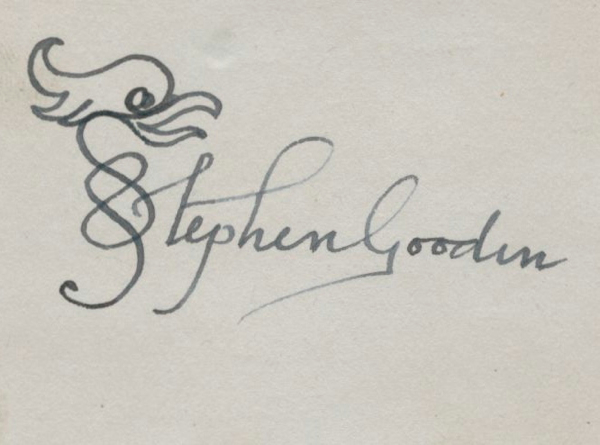 Stephen Gooden